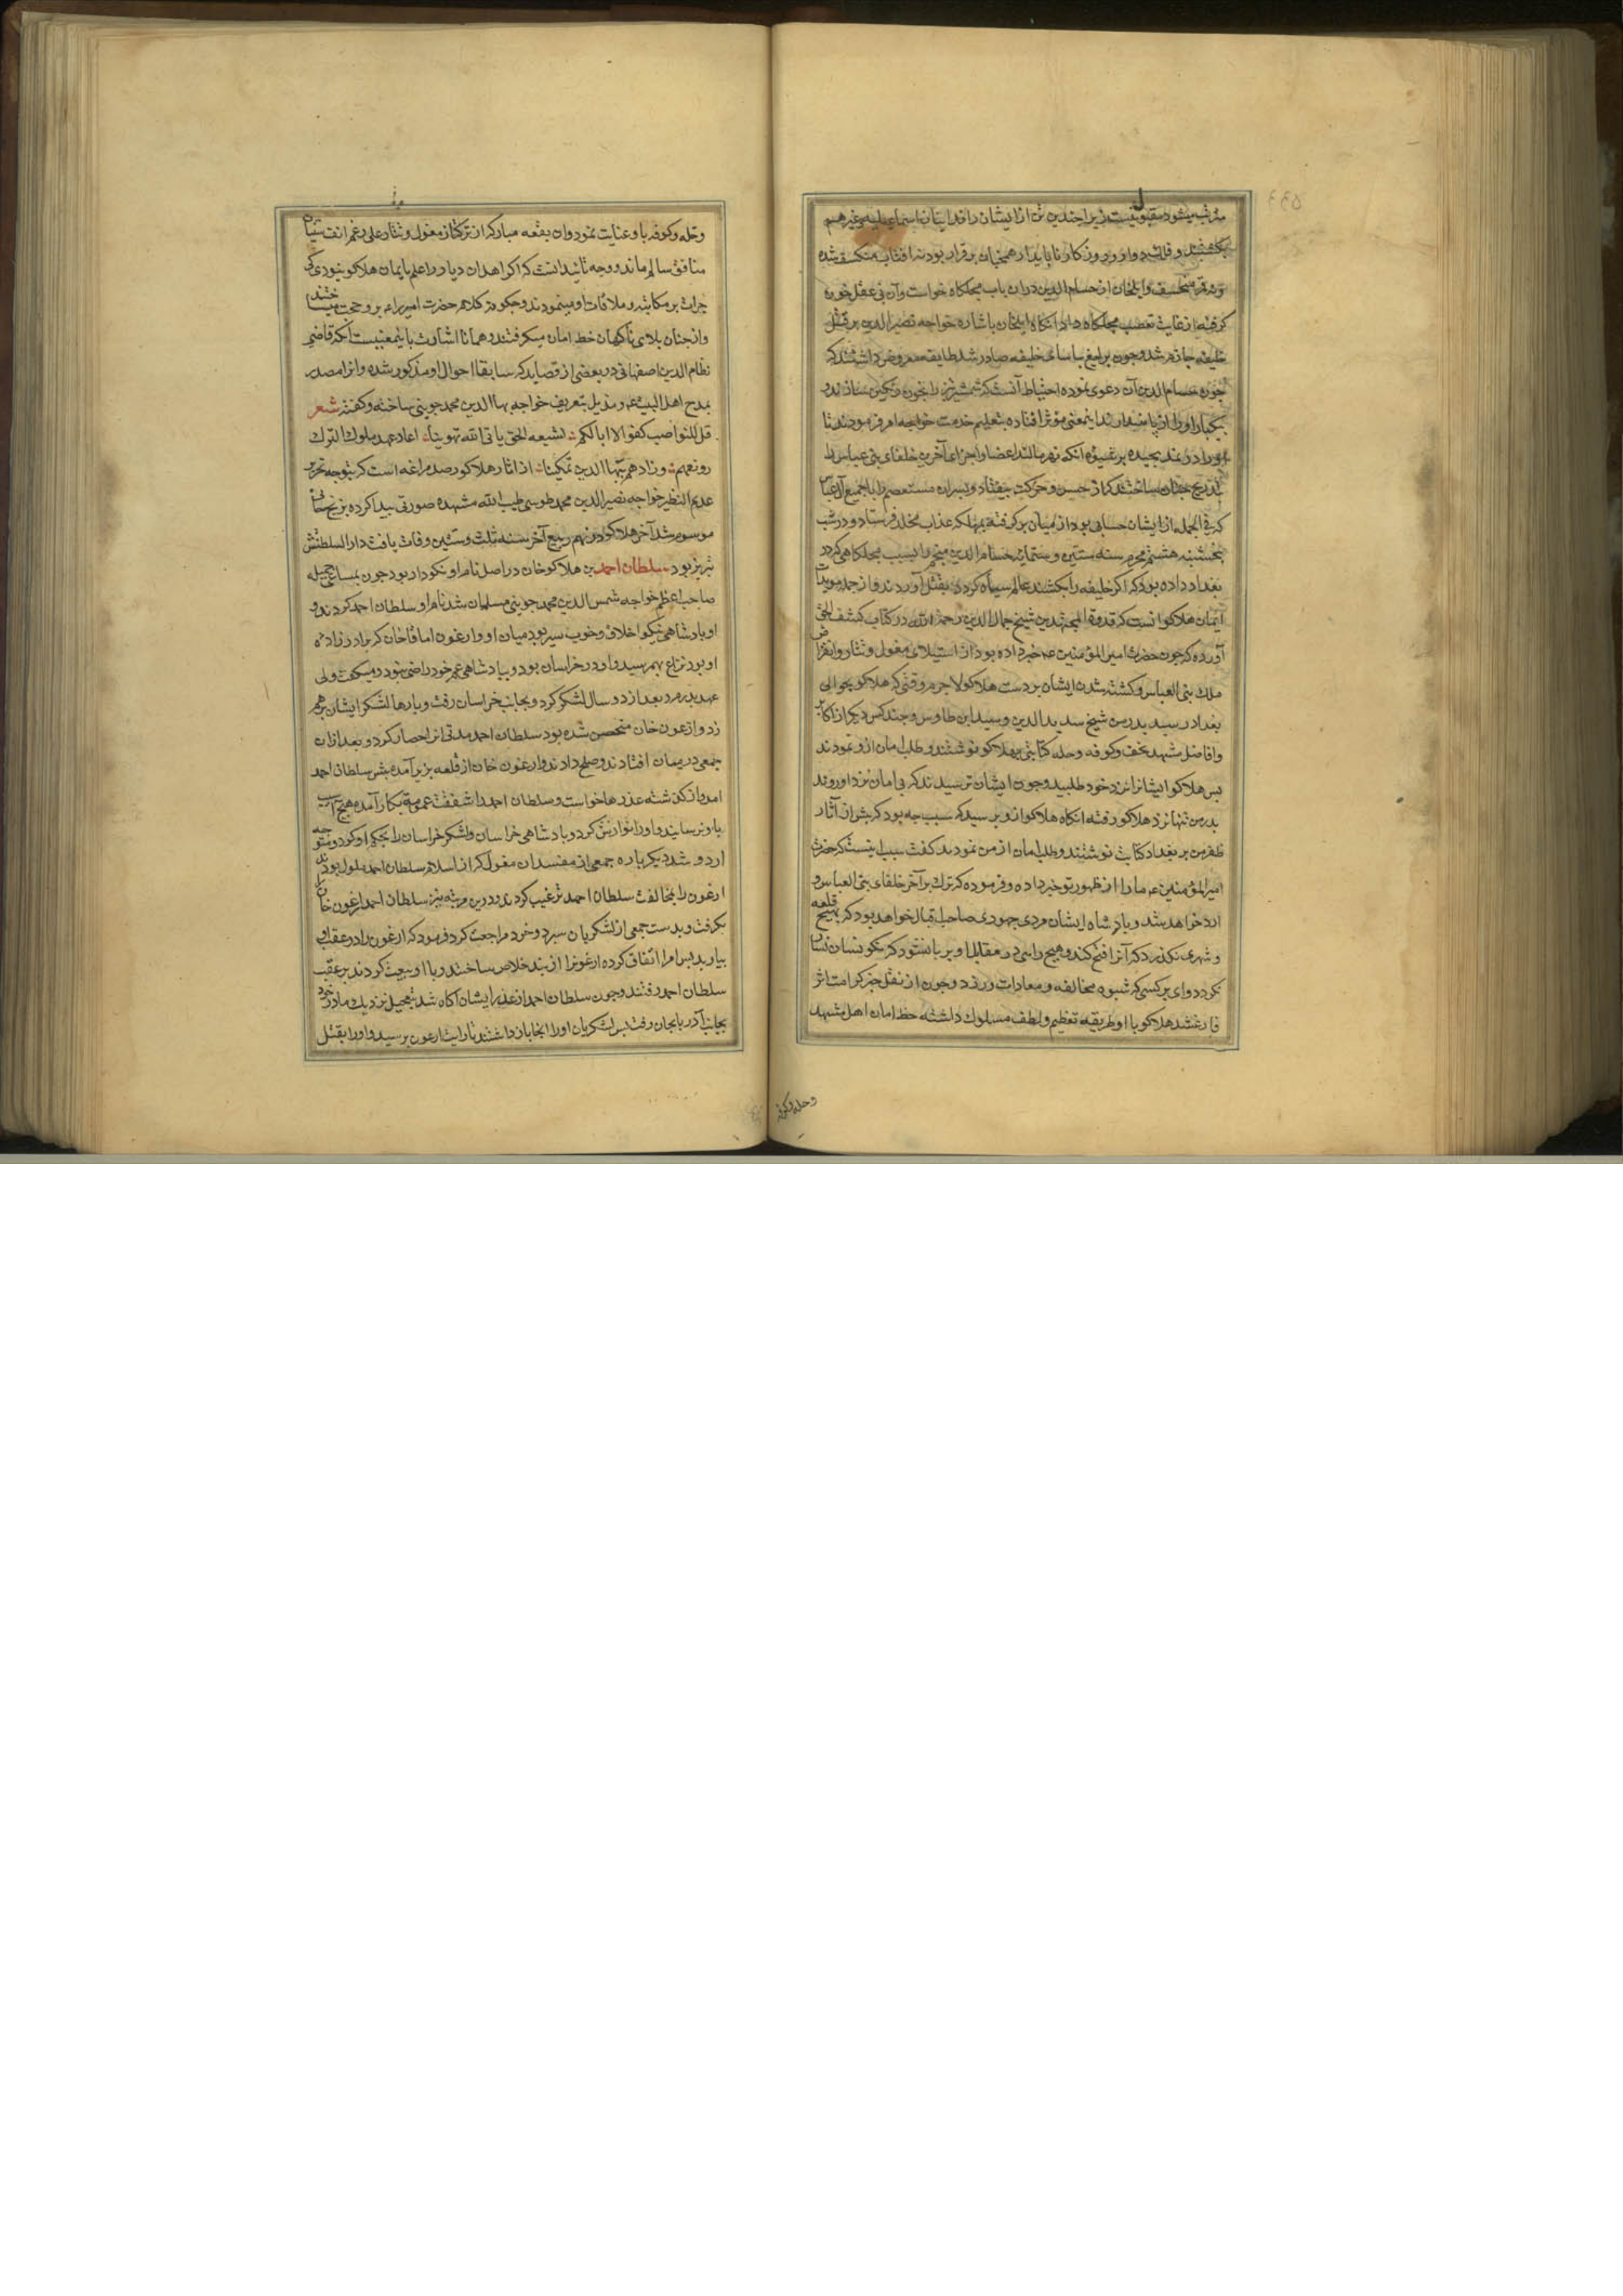 مرتب میشود مقبول نیست زیرا چندین تن از ایشان را فداییان اسماعیلیه و غیرهم
بکشتند و فلک دوار و روزگار ناپایدار همچنان برقرار بود نه افتاب منکسف شده
و نه قمر منخسف و ایلخان از حسام الدین دران باب مجلکاه خواست و آن بی عقل خون
گرفته از غایت تعصب مجلکاه داد انکاه ایلخان باشاره خواجه نصیرالدین بر قتل
خلیفه جازم شد و جون یرلیغ بیاسای خلیفه صادر شد طایفه معروض داشتند که
جون حسام الدین آن دعوی نموده احتیاط آنست که شمشیر تیز را بخون رنگین نسازند و
یکبار اورا از پا نیندازند اینمعنی موثر افتاده بتعلیم خدمت خواجه امر فرمودند تا
اورا در نمد پیچیده بر شیوه انکه نمد مالند اعضا و اجزای آخرین خلفای بنی عباس را
بتدریج چنان ساختند که از حس و حرکت بیفتاد و پسران مستعصم را با جمیع آل عباس
که فی الجمله از ایشان حسابی بود از میان برگرفته بمهلکه عذاب مخلد فرستاد و در شب
پنجشنبه هشتم محرم سنه ستین و ستمائه حسام الدین منجم را بسبب مجلکاهی که در
بغداد داده بود که اگر خلیفه را بکشند عالم سیاه گردد بقتل آوردند و از جمله مویدات
ایمان هلاکو انست که قدوة المجتهدین شیخ جمال الدین رحمه الله در کتاب کشف الحق
آورده که جون حضرت امیرالمؤمنین عه خبر داده بود از استیلای مغول و تتار و انقراض
ملک بنی العباس و کشته شدن ایشان بر دست هلاکو لاجرم وقتی که هلاکو بحوالی
بغداد رسید پدر من شیخ سدید الدین و سید ابن طاوس و چند کس دیگر از اکابر
و افاضل مشهد نجف و کوفه و حله کتابتی بهلاکو نوشتند و طلب امان ازو نمودند
پس هلاکو ایشانرا نزد خود طلبید و جون ایشان ترسیدند که بی امان نزد او روند
پدر من تنها نزد هلاکو رفته انکاه هلاکو ازو پرسید که سبب چه بود که پیش از آثار
ظفر من بر بغداد کتابت نوشتند و طلب امان از من نمودند گفت سبب اینست که حضرت
امیرالمؤمنین عه مارا از ظهور تو خبر داده و فرموده که ترک بر آخر خلفای بنی العباس و
ارد خواهد شد و پادشاه ایشان مردی جهوری صاحب اقبال خواهد بود که بهیچ قلعه
و شهری نگذرد که آنرا فتح کند و هیچ رایی در مقابل او بر پا نشود که نگونسان نشان
نگردد وای بر کسی که شیوه مخالفه و معادات ورزد و جون از نقل خبر کرامت اثر
فارغ شد هلاکو با او طریقه تعظیم و لطف مسلوک داشته خط امان اهل مشهد
وحله وکوفه
وحله و کوفه باو عنایت نمود و ان بقعه مبارکه از ترکتاز مغول و تتار علی رغم انف شتیان
منافق سالم ماند و وجه تائید انست که اگر اهل ان دیار را علم بایمان هلاکو نبودی کی
جرات بر مکاتبه و ملاقات او مینمودند و جکونه کلام حضرت امیر را عه برو حجت میساختند
و از جنان بلای ناگهان خط امان میگرفتند و همانا اشارت باینمعنیست آنکه قاضی
نظام الدین اصفهانی در بعضی از قصاید که سابقا احوال او مذکور شده و انرا مصدر
بمدح اهل البیت عه و مذیل بتعریف خواجه بها الدین محمد جوینی ساخته و گفته شعر
قل للنواصب کفوا لا ابا لکم لشیعه الحق یابی الله توهینا اعاد عهد ملوک الترک
رونقهم و زادهم ببها الدین تمکینا از اثار هلاکو رصد مراغه است که بتوجه تحریر
عدیم النظیر خواجه نصیرالدین محمد طوسی طیب الله مشهده صورتی پیدا کرده بزیج خانی
موسوم شد آخر هلاکو در نهم ربیع آخر سنه ثلث و ستین وفات یافت دار السلطنتش
تبریز بود سلطان احمد بن هلاکوخان در اصل نام او نکودار بود جون بمساعی جمیله
صاحب اعظم خواجه شمس الدین محمد جوینی مسلمان شد نام او سلطان احمد کردند و
او پادشاهی نیکو اخلاق و خوب سیر بود میان او و ارغون اباقا خان که برادر زاده
او بود نزاع بهم رسید و او در خراسان بود و بپادشاهی عم خود راضی نبود و میگفت ولی
عهد پدرم بعد از دو سال لشکر کرد و بجانب خراسان رفت و بارها لشکر ایشان برهم
زد و ارغون خان متحصن شده بود سلطان احمد مدتی انرا حصار کرد و بعد ازان
جمعی در میان افتادند و صلح دادند و ارغون خان از قلعه بزیر آمده پیش سلطان احمد
امد و از گذشته عذرها خواست و سلطان احمد را شفقت عمویة بکار آمده هیچ آسیب
باو نرسانید و اورا نوازش کرد و پادشاهی خراسان و لشکر خراسان را بحکم او کرد و متوجه
اردو شد دیگر باره جمعی از مفسدان مغول که از اسلام سلطان احمد ملول بودند
ارغون را بمخالفت سلطان احمد ترغیب کردند و درین مرتبه نیز سلطان احمد ارغون خان را
بگرفت و بدست جمعی از لشکریان سپرد و خود مراجعت کرد و فرمود که ارغون را در عقب او
بیارید پس امرا اتفاق کرده ارغونرا از بند خلاص ساختند و با او بیعت کردند بر عقب
سلطان احمد رفتند و جون سلطان احمد از غدر ایشان آگاه شد بتعجیل نزدیک مادر خود
بجانب آذربایجان رفت پس لشکریان اورا انجا باز داشتند تا رایت ارغون برسید و اورا بقتل